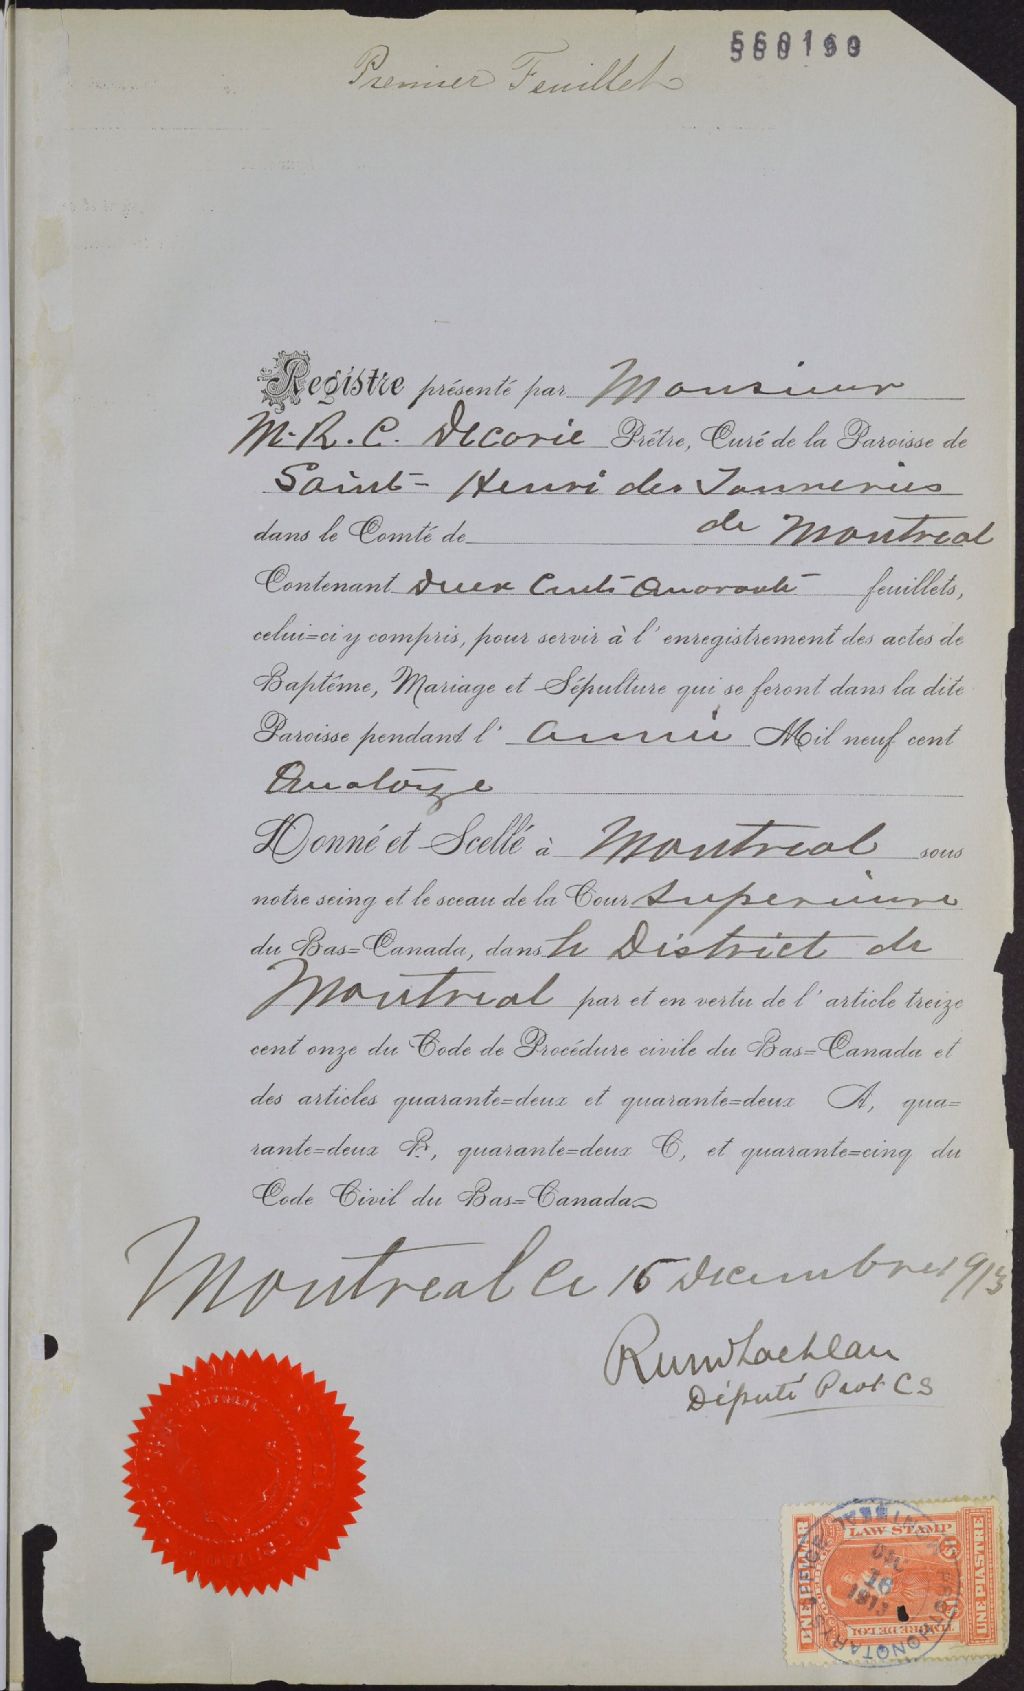 Premier Feuillet
Registre présenté par Monsieur
M. R. C. Decarie Prêtre, Curé de la Paroisse de
Saint-Henri des Tanneries
dans le Comté de de Montreal
Contenant Deux Cents Quarante feuillets,
celui=ci y compris, pour servir à l'enregistrement des actes de
Baptême, Mariage et Sépulture qui se feront dans la dite
Paroisse pendant l'année Mil neuf cent
Quatorze
Donné et Scellé à Montreal sous
notre seing et le sceau de la Cour Superieure
du Bas=Canada, dans le District de
Montreal par et en vertu de l'article treize
cent onze du Code de Procédure civile du Bas=Canada et
des articles quarante=deux et quarante=deux A, qua=
rante=deux B, quarante=deux C, et quarante=cinq du
Code Civil du Bas=Canada
Montreal le 16 Decembre 1913
Lachlan
Députe Prot C S
LAW STAMP
ONE PIASTRE
UNE PIASTRE
TIMBRE DE LOI
DEC
16
1913
PROTHONOTARY'S OFFICE MONTREAL